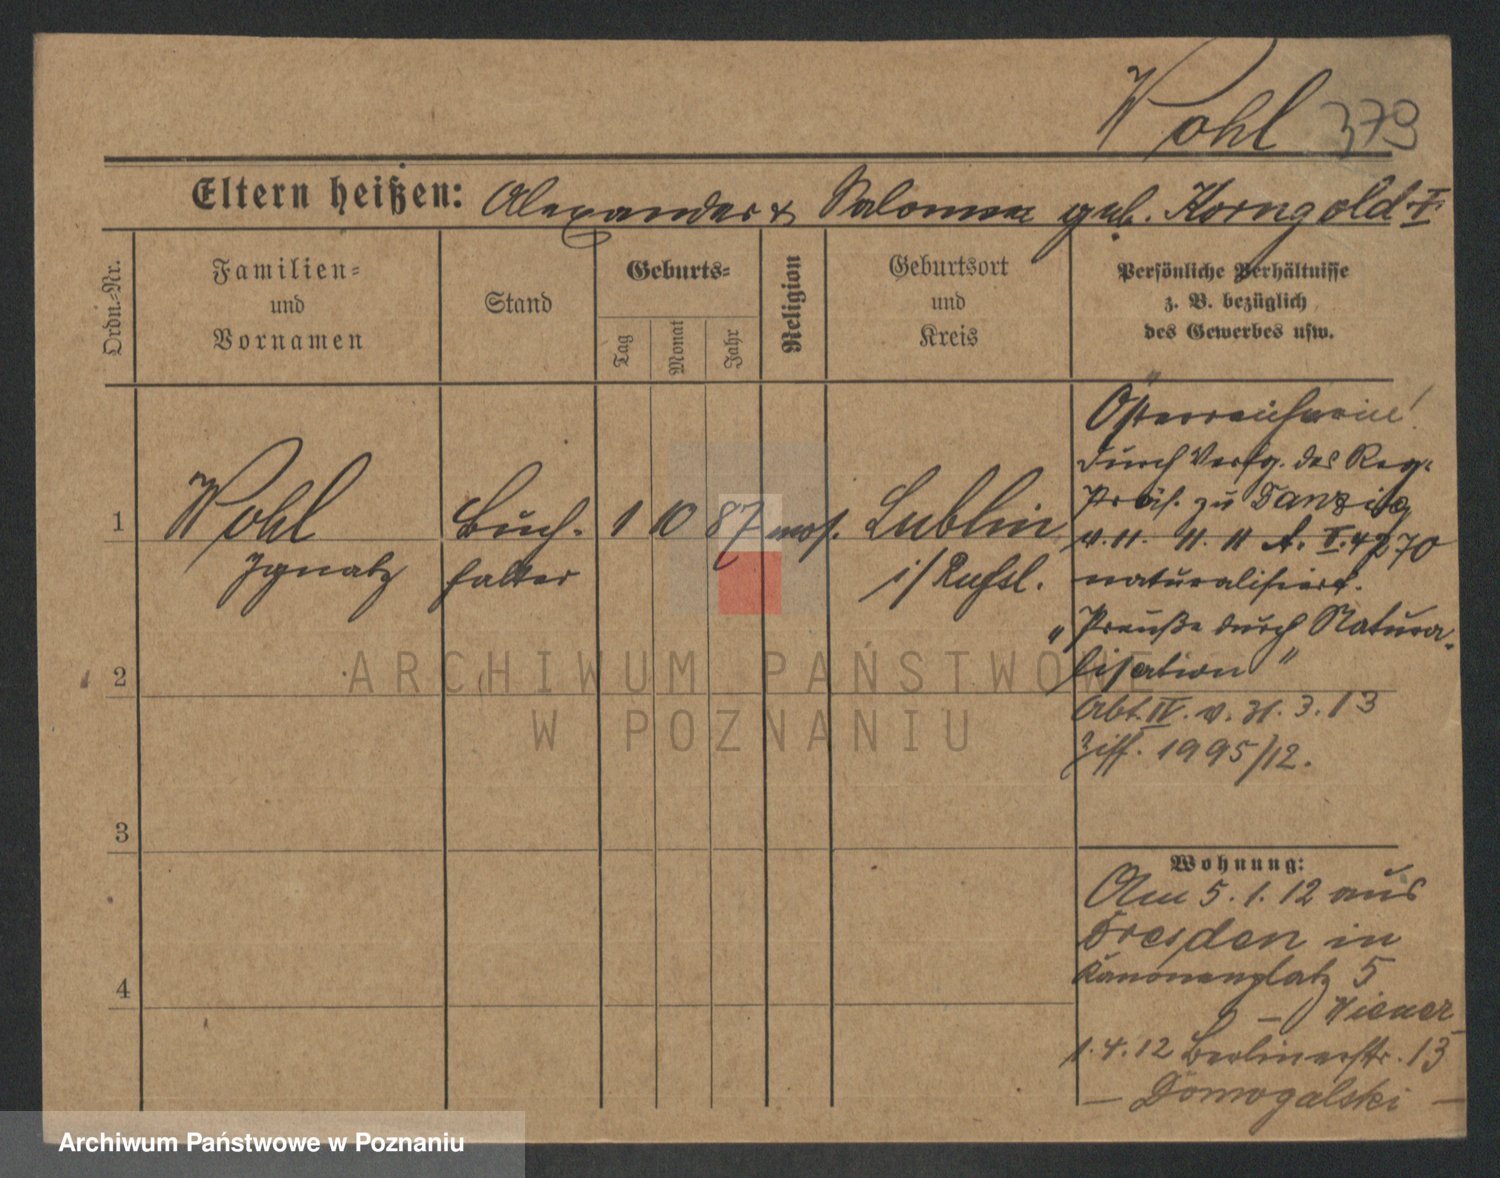 Wohl 379
Eltern heißen: Alexander & Salomea geb. Korngold I.
Ordn.-Nr.
Familien-
und
Vornamen
Stand
Geburts-
Tag
Monat
Jahr
Religion
Geburtsort
und
Kreis
Persönliche Verhältnisse
z. B. bezüglich
des Gewerbes usw.
1
Wohl
Ignatz
Buch-
halter
1 10 87 mos.
Lublin
i/Rußl.
durch Verfg. des Reg.
Präs. zu Danzig
v. 11. 11. 11 A. 4270
naturalisiert.
"Preuße durch Natura-
lisation"
Abt. IV. v. 31. 3. 13
Ziff. 1995/12.
2
3
4
Wohnung:
Am 5. 1. 12 aus
Dresden in
Kanonenplatz 5
– Wiener –
1. 4. 12 Berlinerstr. 13
– Domogalski –
ARCHIWUM PAŃSTWOWE
W POZNANIU
Archiwum Państwowe w Poznaniu